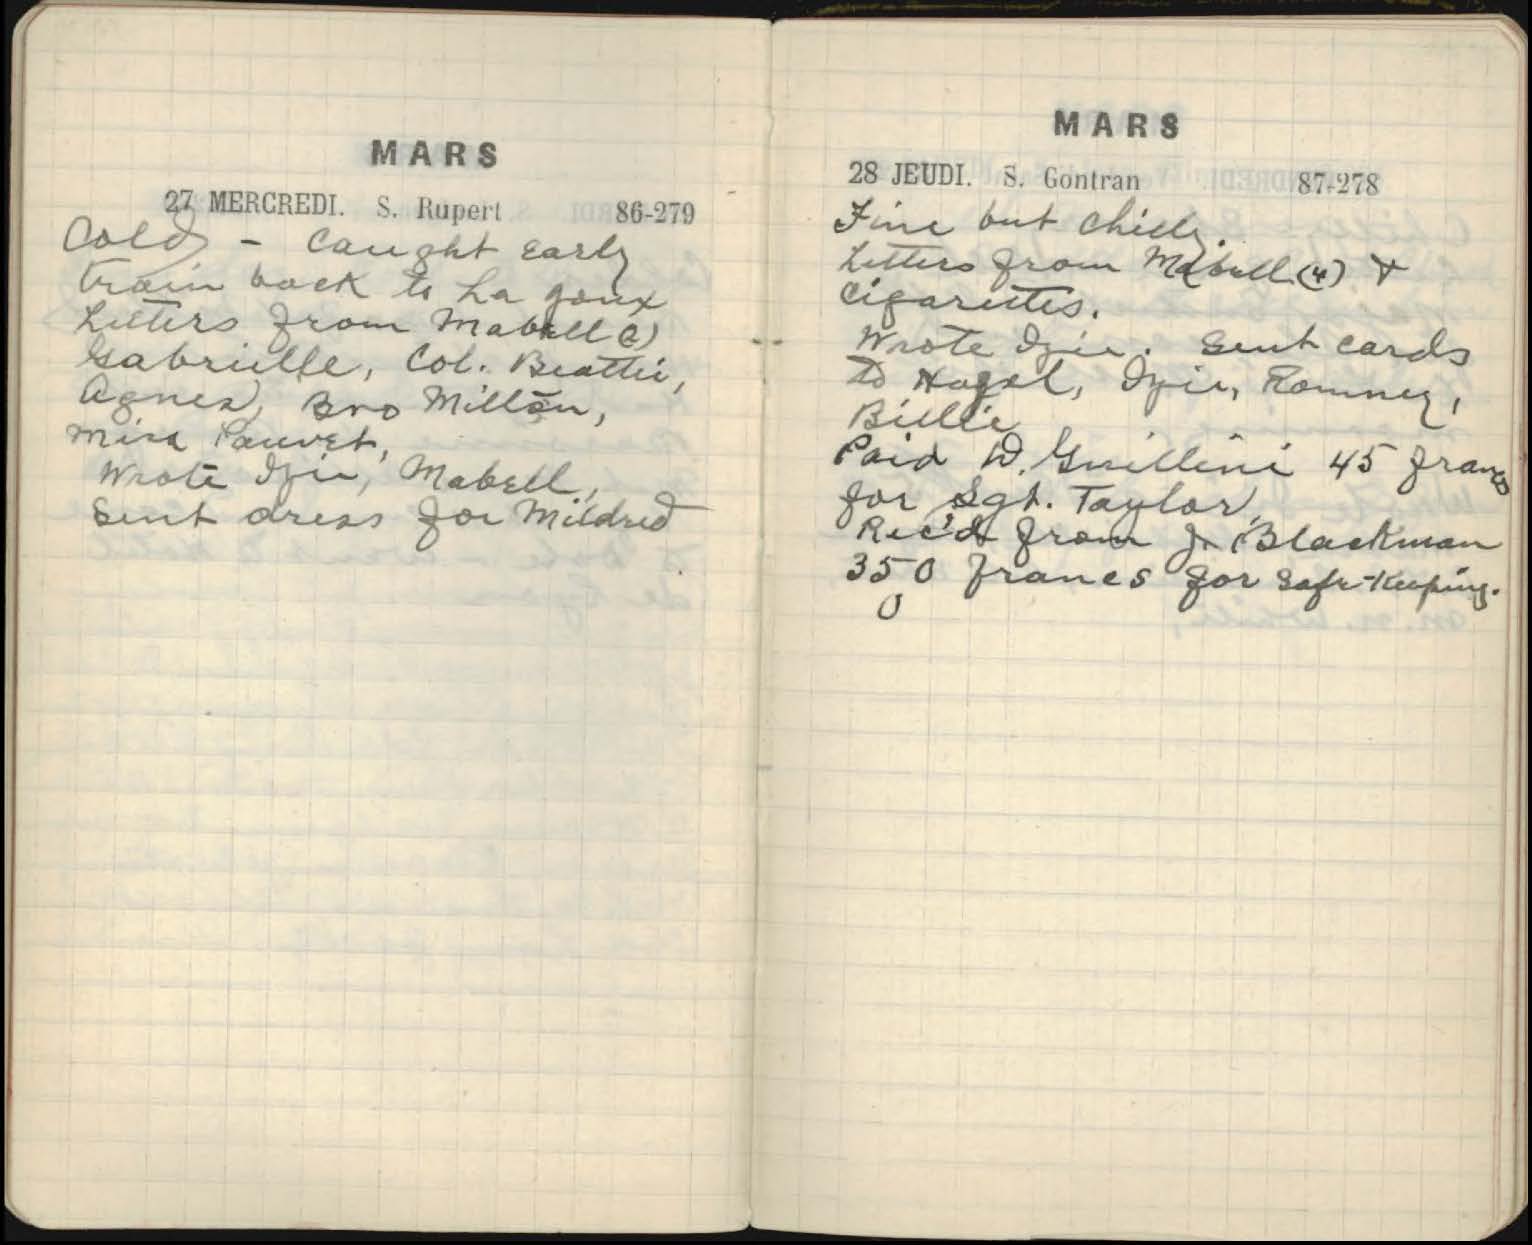 MARS
27 MERCREDI. S. Rupert 86-279
Cold - Caught Early
train back to La Joux
Letters from Mabell (2)
Gabrielle, Col. Beattie,
Agnes, Bro Milton,
Miss Pauvet,
Wrote Izie, Mabell,
Sent dress for Mildred
MARS
28 JEUDI. S. Gontran 87-278
Fine but chilly.
Letters from Mabell (4) &
Cigarettes.
Wrote Izie. Sent cards
to Hazel, Izie, Romney,
Billie
Paid W. Guillini 45 francs
for Sgt. Taylor,
Rec'd from J. Blackman
350 francs for safe-keeping.